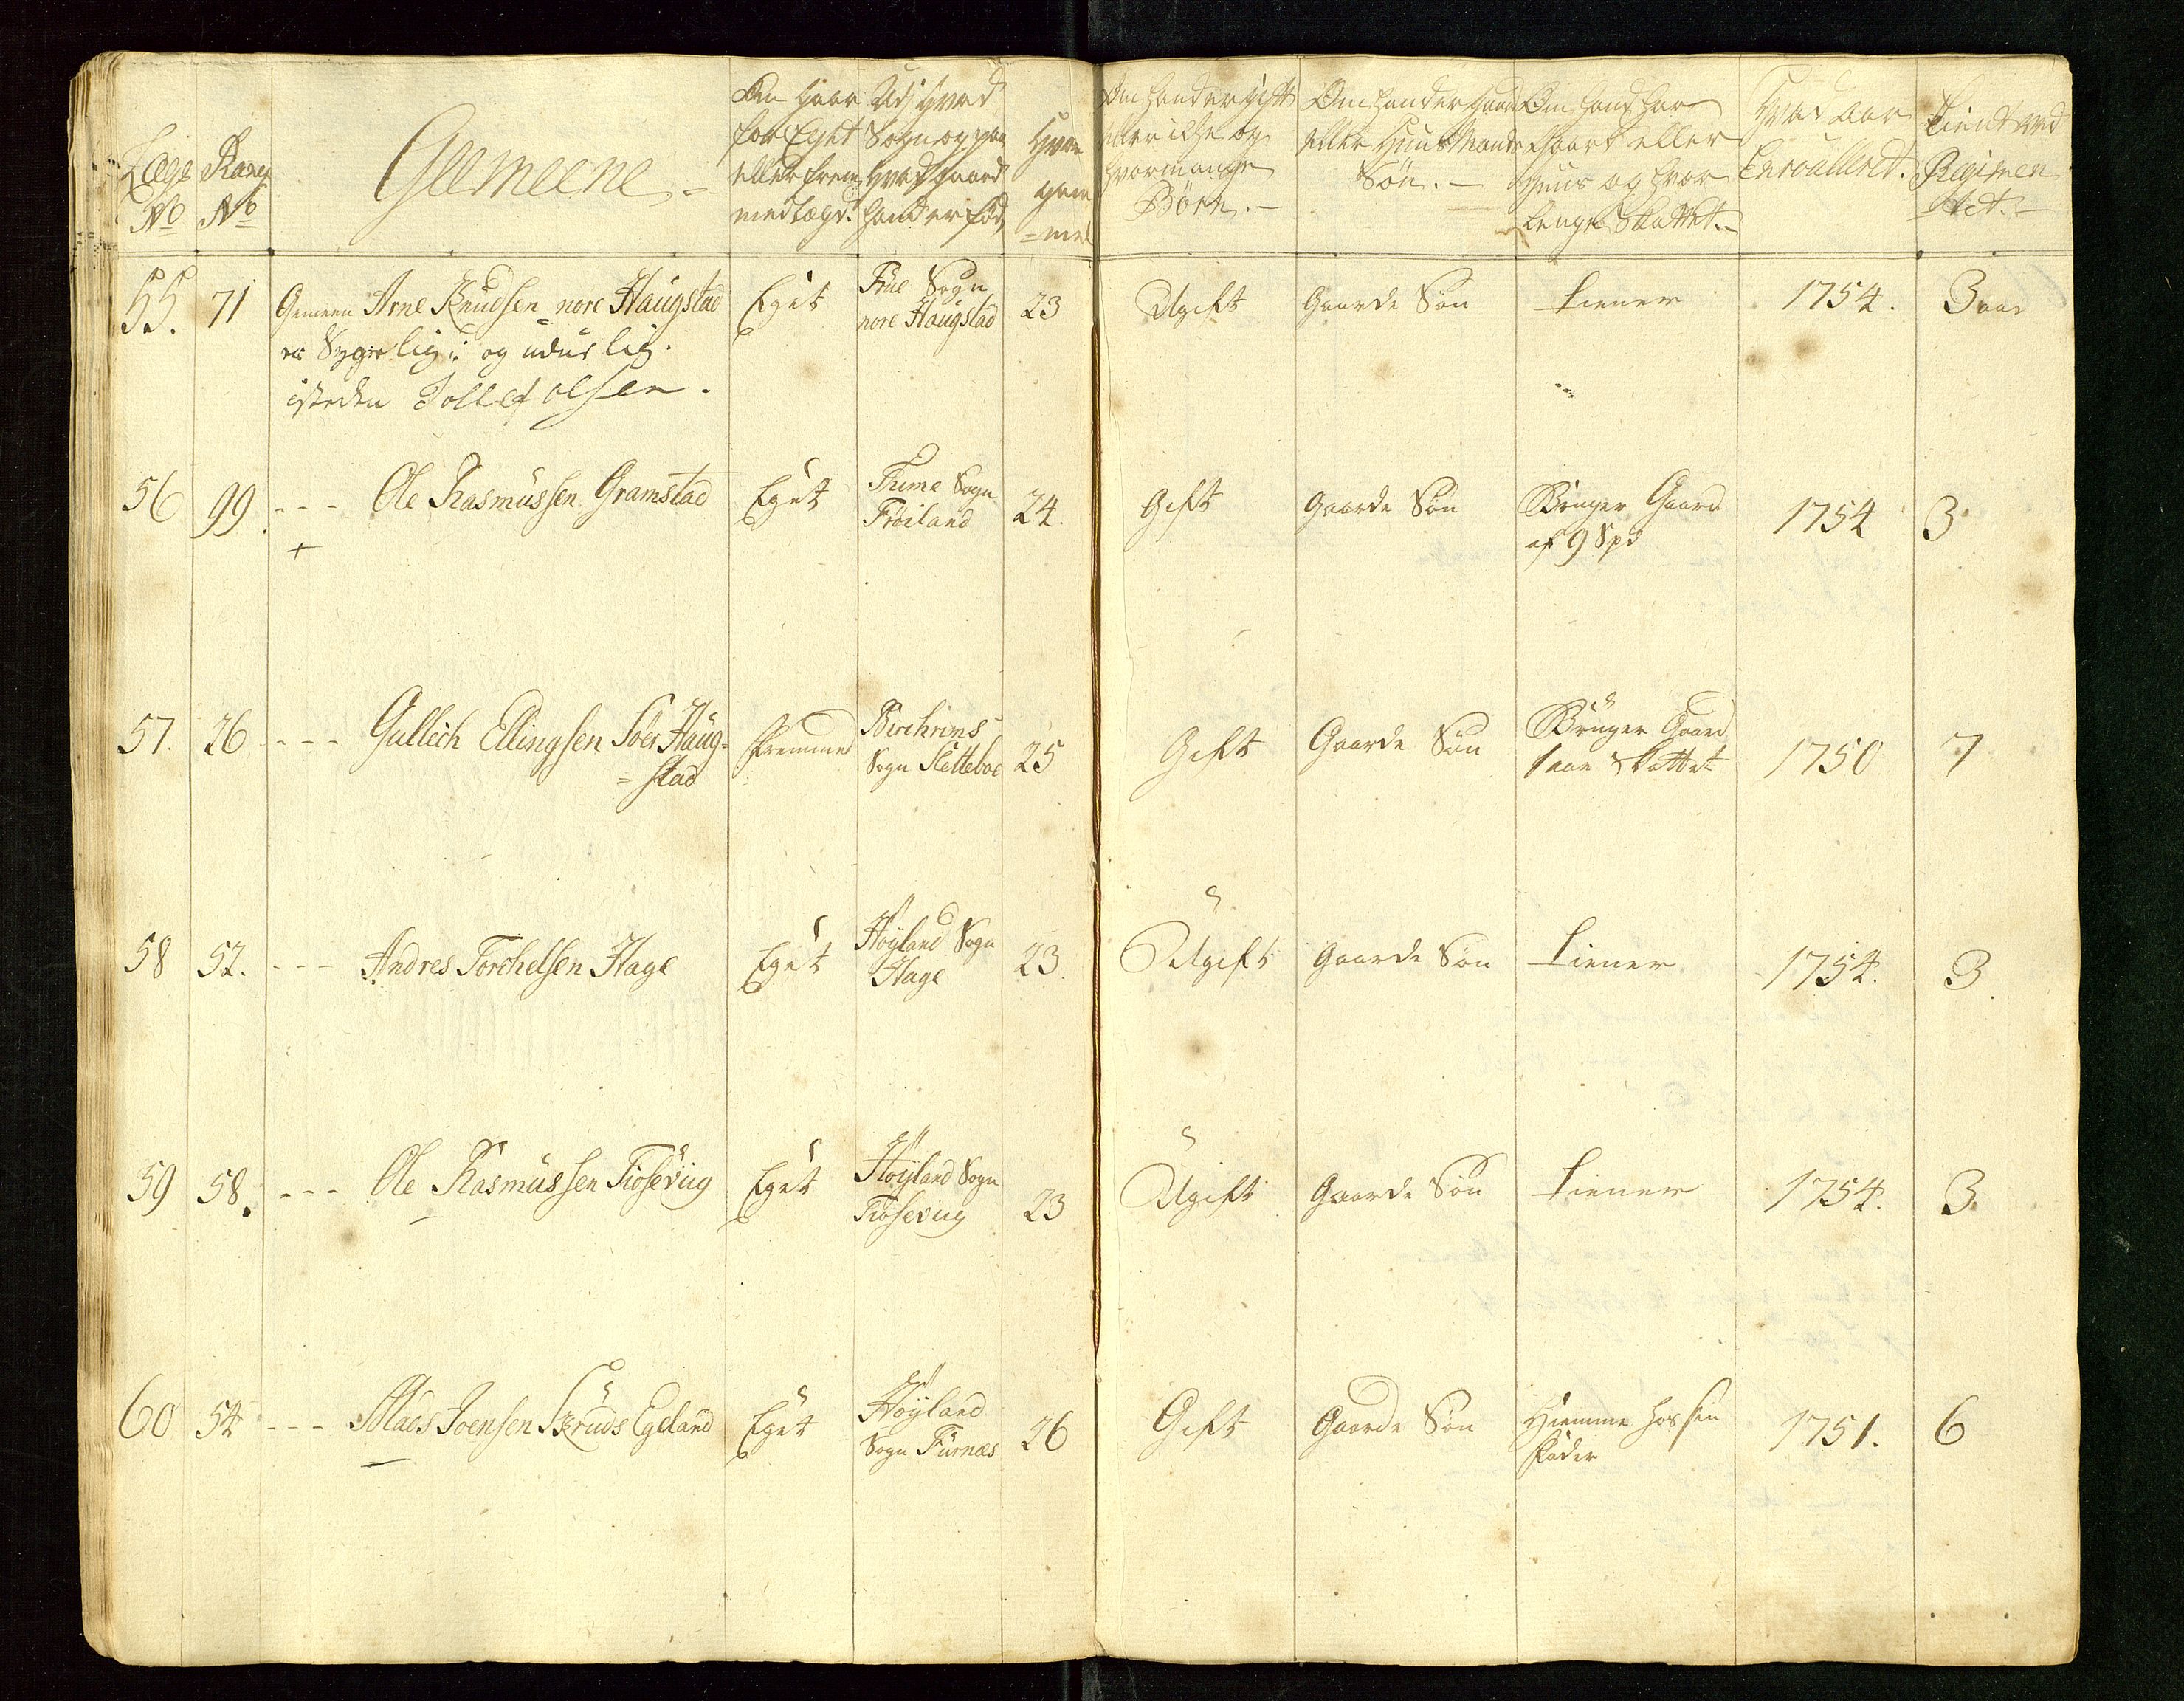 Lægs No
Rang No
Gemeene
Om haar for Eget eller fremmed Lægd.
Udj hvad Sogn og paa hvad gaard hand er fød
Hvor gam=mel
Om hand er gift eller icke og hvormange Børn.
Om hand er Gaard eller Huusmands Søn.
Om hand har Gaard eller Huus og hvor lenge Skattet.
Hvad aar Enroulleret.
Tient ved Regimentet.
55. 71 Gemeen Arne Knudsen nore Haugstad Eget Frue Sogn nore Haugstad 23 Ugift Gaarde Søn tiener 1754. 3 aar
er Sygelig og udue lig.
isteden Tollef olsen.
56 99. --- Ole Rasmussen Gramstad Eget Thime Sogn Frøiland 24. Gift Gaarde Søn Bruger Gaard af 9 Spd 1754 3
+
57. 26 --- Gullich Ellingsen Søer Haug=stad fremmed Birchrims Sogn Sletteboe 25 Gift Gaarde Søn Bruger Gaard 1 aar Skattet 1750 7
58 52. --- Andres Torchelsen Hage Eget Høyland Sogn Hage 23. Ugift Gaarde Søn tiener 1754. 3.
59 58. --- Ole Rasmussen Tiosevug Eget Høyland Sogn Tiosevug 23 Ugift Gaarde Søn tiener 1754. 3.
60 54 --- Mads Joensen Skruds Egeland Eget Høyland Sogn Furnæs 26 Gift Gaarde Søn Hiemme hos sin fader 1751. 6